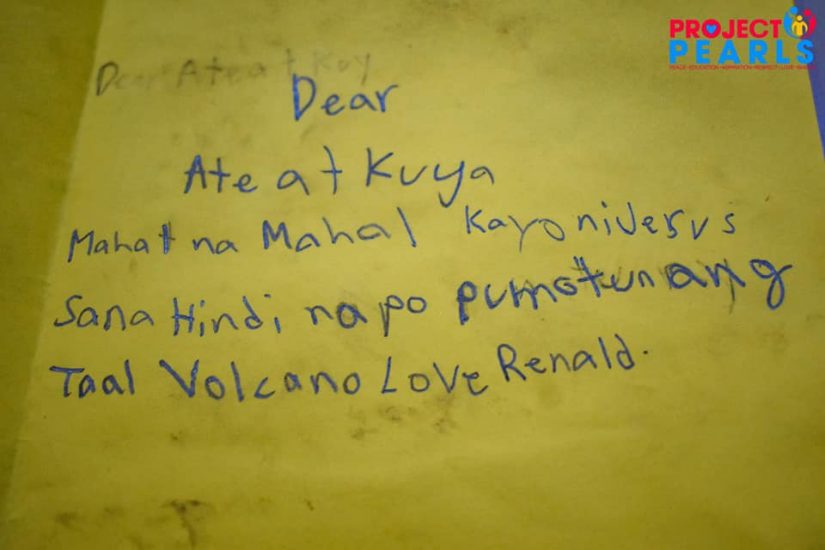 PROJECT
PEARLS
Dear Ate at Kuy
Dear
Ate at Kuya
Mahal na Mahal kayo ni Jesus
Sana Hindi na po pumotun ang
Taal Volcano Love Renald.